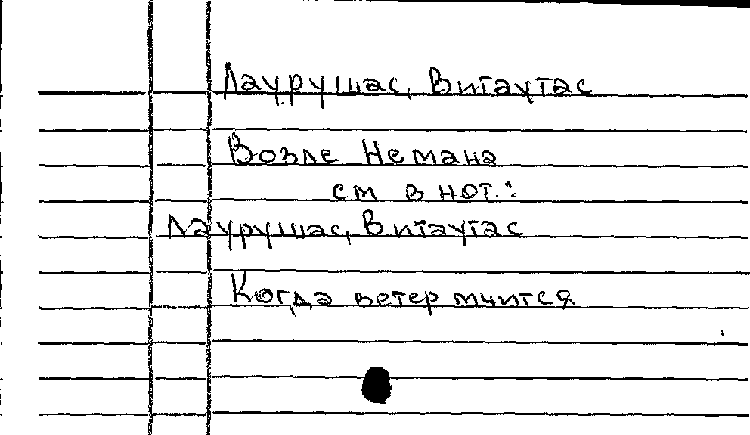 Лаурушас, Витаутас
Возле Немана
см в нот.:
Лаурушас, Витаутас
Когда ветер мчится